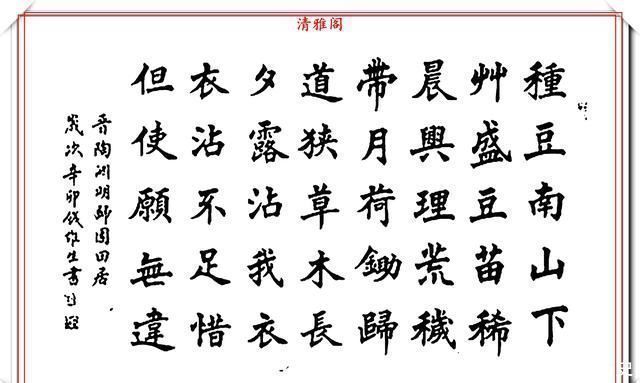 清雅阁
種豆南山下
艸盛豆苗稀
晨興理荒穢
帶月荷鋤歸
道狭草木長
夕露沾我衣
衣沾不足惜
但使願無違
晉陶渊明歸園田居
歲次辛卯錢作生書